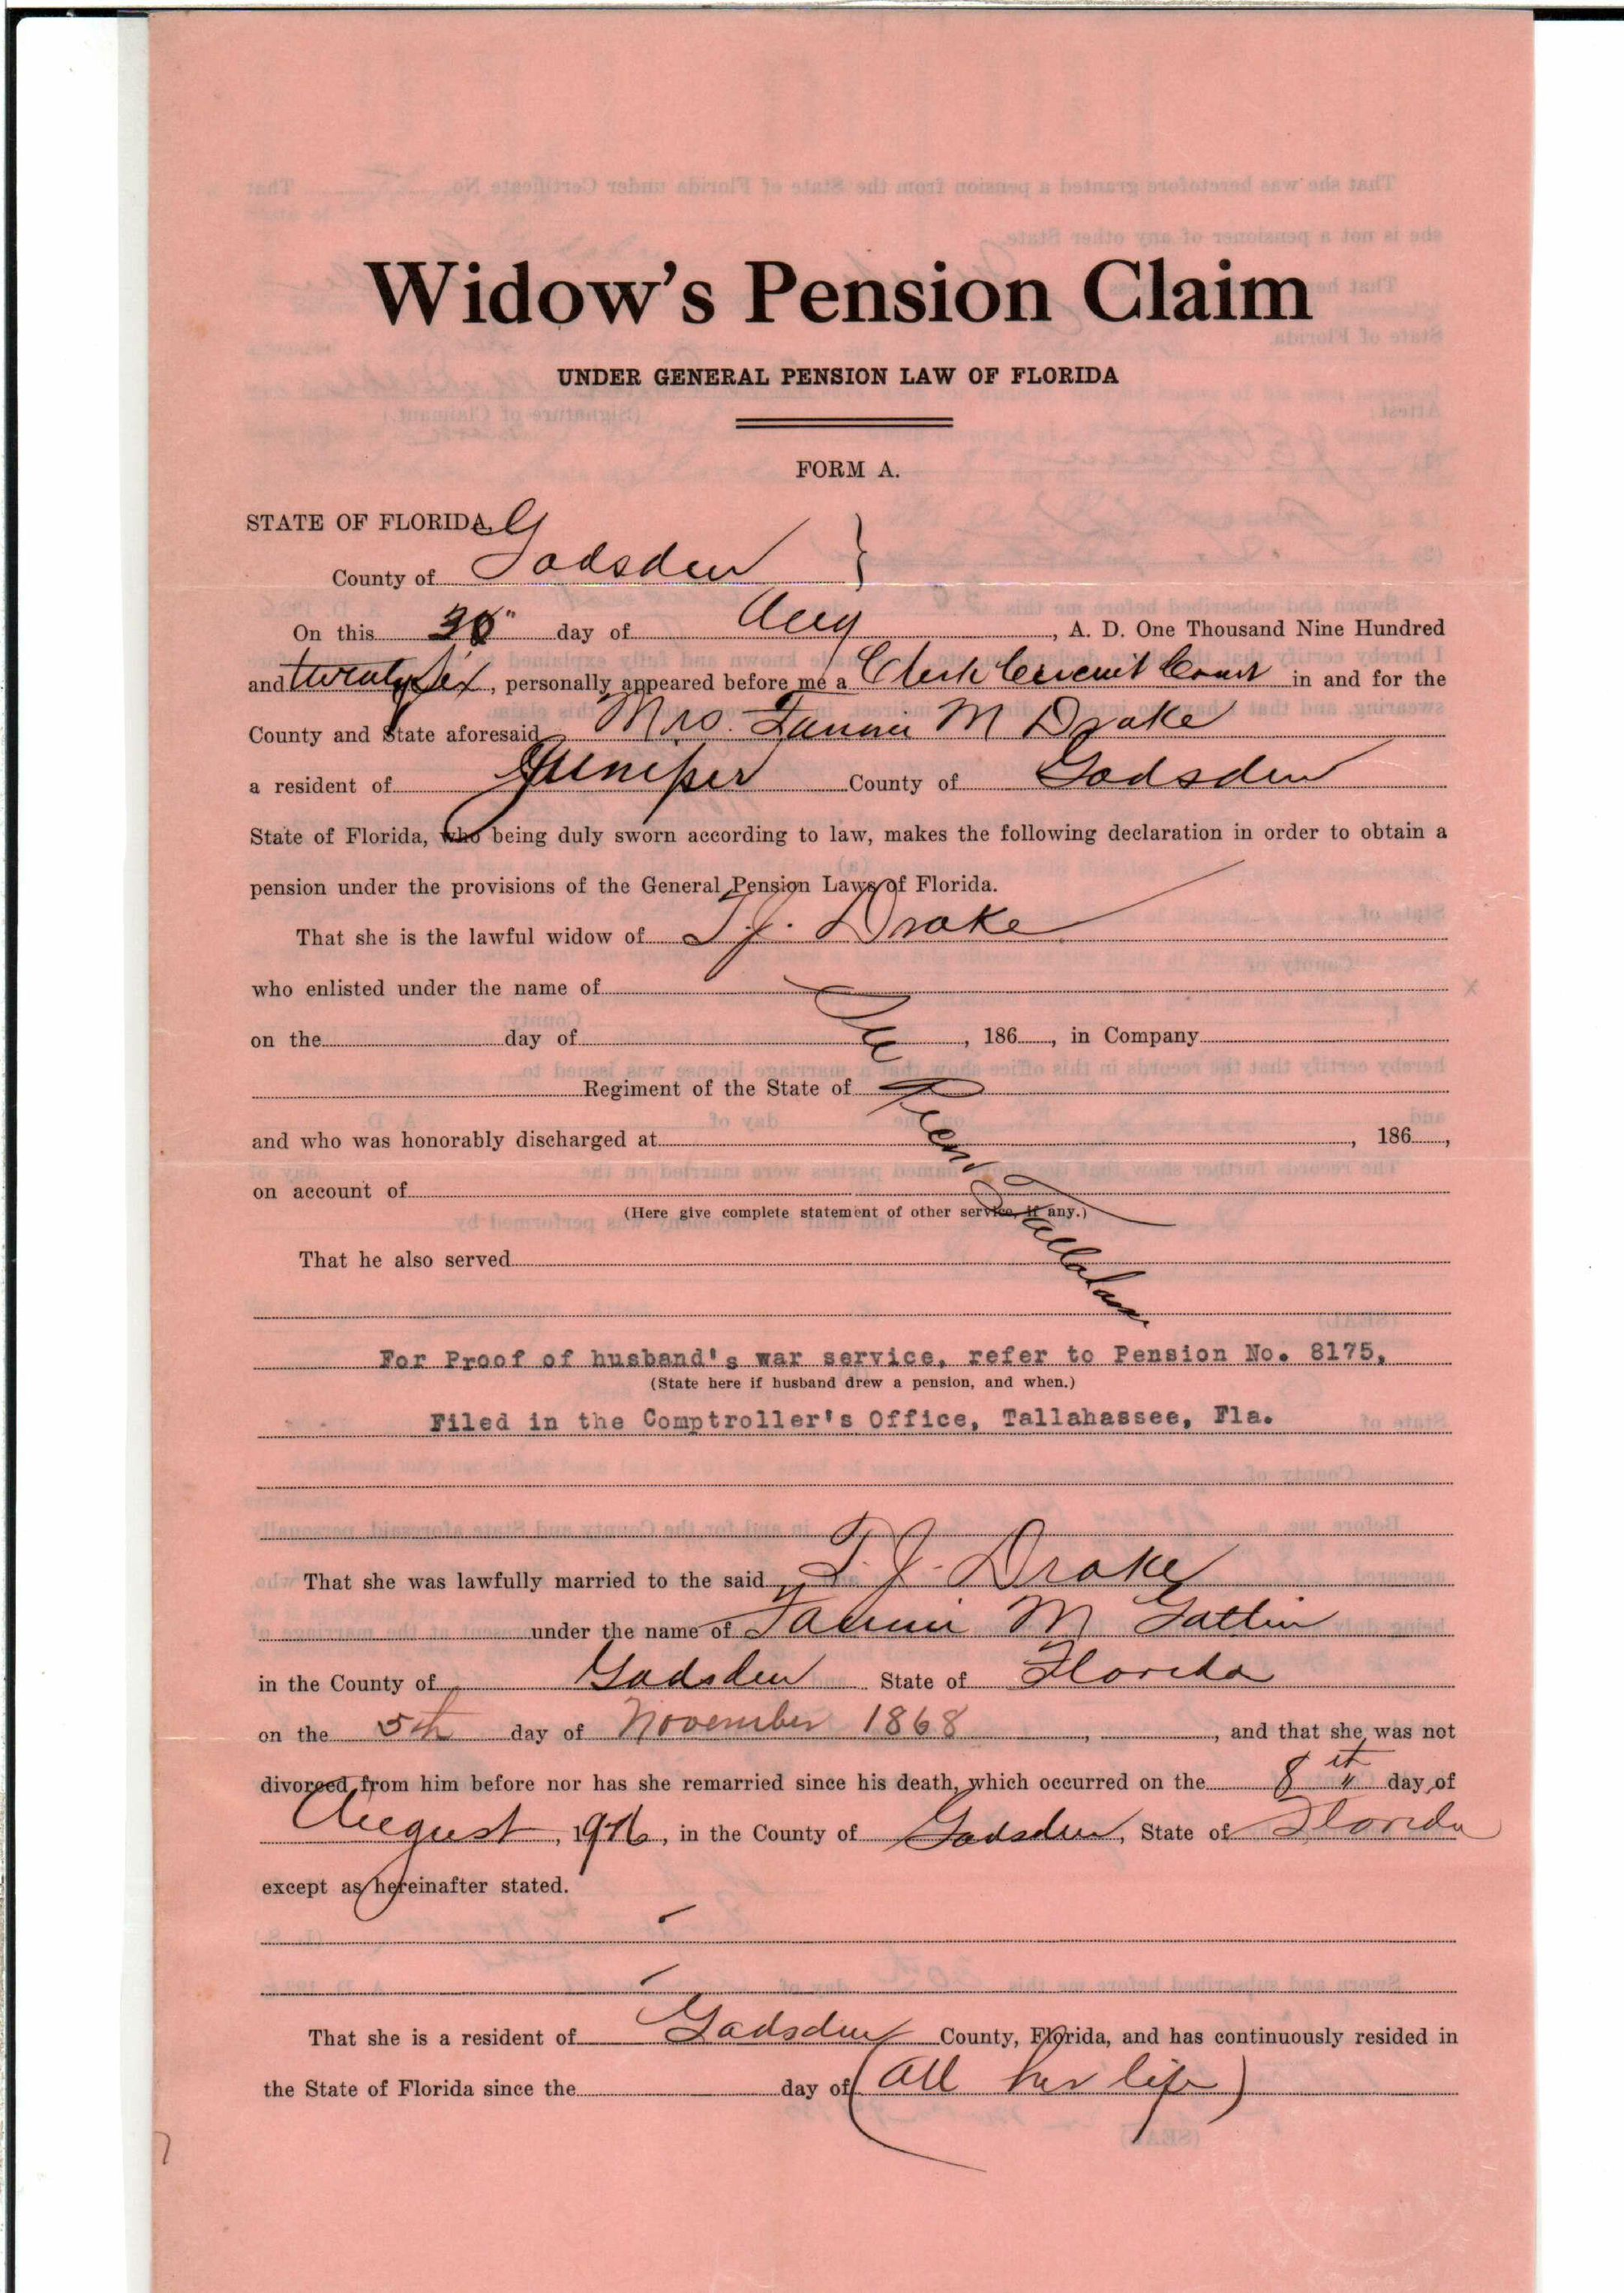 Widow's Pension Claim
UNDER GENERAL PENSION LAW OF FLORIDA
FORM A.
STATE OF FLORIDA,
County of Gadsden }
On this 30" day of Aug, A. D. One Thousand Nine Hundred
and twenty Six, personally appeared before me a Clerk Circuit Court in and for the
County and State aforesaid Mrs. Fannie M Drake
a resident of Juniper County of Gadsden
State of Florida, who being duly sworn according to law, makes the following declaration in order to obtain a
pension under the provisions of the General Pension Laws of Florida.
That she is the lawful widow of T. J. Drake
who enlisted under the name of
on the day of , 186 , in Company
Regiment of the State of
and who was honorably discharged at , 186 ,
on account of
(Here give complete statement of other service, if any.)
That he also served
For Proof of husband's war service, refer to Pension No. 8175,
(State here if husband drew a pension, and when.)
Filed in the Comptroller's Office, Tallahassee, Fla.
That she was lawfully married to the said T. J. Drake
under the name of Fannie M Gatlin
in the County of Gadsden State of Florida
on the 5th day of November 1868 , , and that she was not
divorced from him before nor has she remarried since his death, which occurred on the 8th day of
August, 19 , in the County of Gadsden, State of Florida
except as hereinafter stated.
That she is a resident of Gadsden County, Florida, and has continuously resided in
the State of Florida since the day of (all her life)